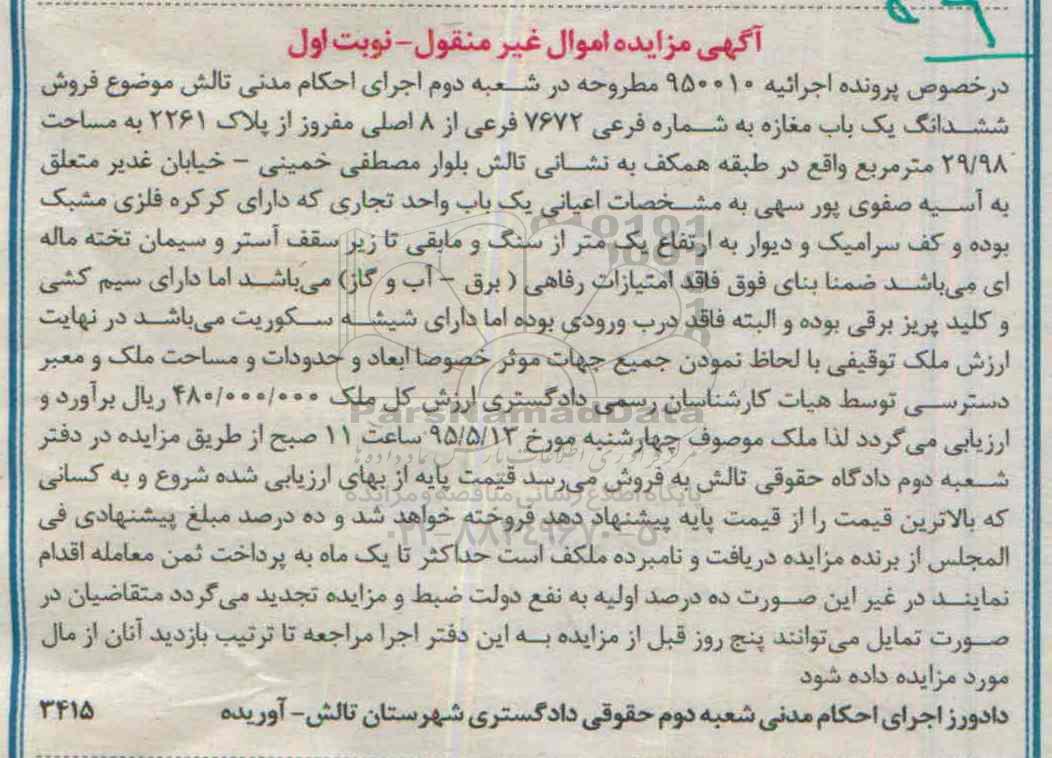 آگهی مزایده اموال غیر منقول- نوبت اول
درخصوص پرونده اجرائیه ۹۵۰۰۱۰ مطروحه در شعبه دوم اجرای احکام مدنی تالش موضوع فروش
ششدانگ یک باب مغازه به شماره فرعی ۷۶۷۲ فرعی از ۸ اصلی مفروز از پلاک ۲۲۶۱ به مساحت
۲۹/۹۸ مترمربع واقع در طبقه همکف به نشانی تالش بلوار مصطفی خمینی - خیابان غدیر متعلق
به آسیه صفوی پور سهی به مشخصات اعیانی یک باب واحد تجاری که دارای کرکره فلزی مشبک
بوده و کف سرامیک و دیوار به ارتفاع یک متر از سنگ و مابقی تا زیر سقف آستر و سیمان تخته ماله
ای می‌باشد ضمنا بنای فوق فاقد امتیازات رفاهی ( برق - آب و گاز) می‌باشد اما دارای سیم کشی
و کلید پریز برقی بوده و البته فاقد درب ورودی بوده اما دارای شیشه سکوریت می‌باشد در نهایت
ارزش ملک توقیفی با لحاظ نمودن جمیع جهات موثر خصوصا ابعاد و حدودات و مساحت ملک و معبر
دسترسی توسط هیات کارشناسان رسمی دادگستری ارزش کل ملک ۴۸۰/۰۰۰/۰۰۰ ریال برآورد و
ارزیابی می‌گردد لذا ملک موصوف چهارشنبه مورخ ۹۵/۵/۱۳ ساعت ۱۱ صبح از طریق مزایده در دفتر
شعبه دوم دادگاه حقوقی تالش به فروش می‌رسد قیمت پایه از بهای ارزیابی شده شروع و به کسانی
که بالاترین قیمت را از قیمت پایه پیشنهاد دهد فروخته خواهد شد و ده درصد مبلغ پیشنهادی فی
المجلس از برنده مزایده دریافت و نامبرده ملکف است حداکثر تا یک ماه به پرداخت ثمن معامله اقدام
نمایند در غیر این صورت ده درصد اولیه به نفع دولت ضبط و مزایده تجدید می‌گردد متقاضیان در
صورت تمایل می‌توانند پنج روز قبل از مزایده به این دفتر اجرا مراجعه تا ترتیب بازدید آنان از مال
مورد مزایده داده شود
دادورز اجرای احکام مدنی شعبه دوم حقوقی دادگستری شهرستان تالش- آوریده ۳۴۱۵
ParsNamadData
پایگاه اطلاع رسانی مناقصه و مزایده
۰۲۱-۸۸۳۴۹۶۷۰-۵